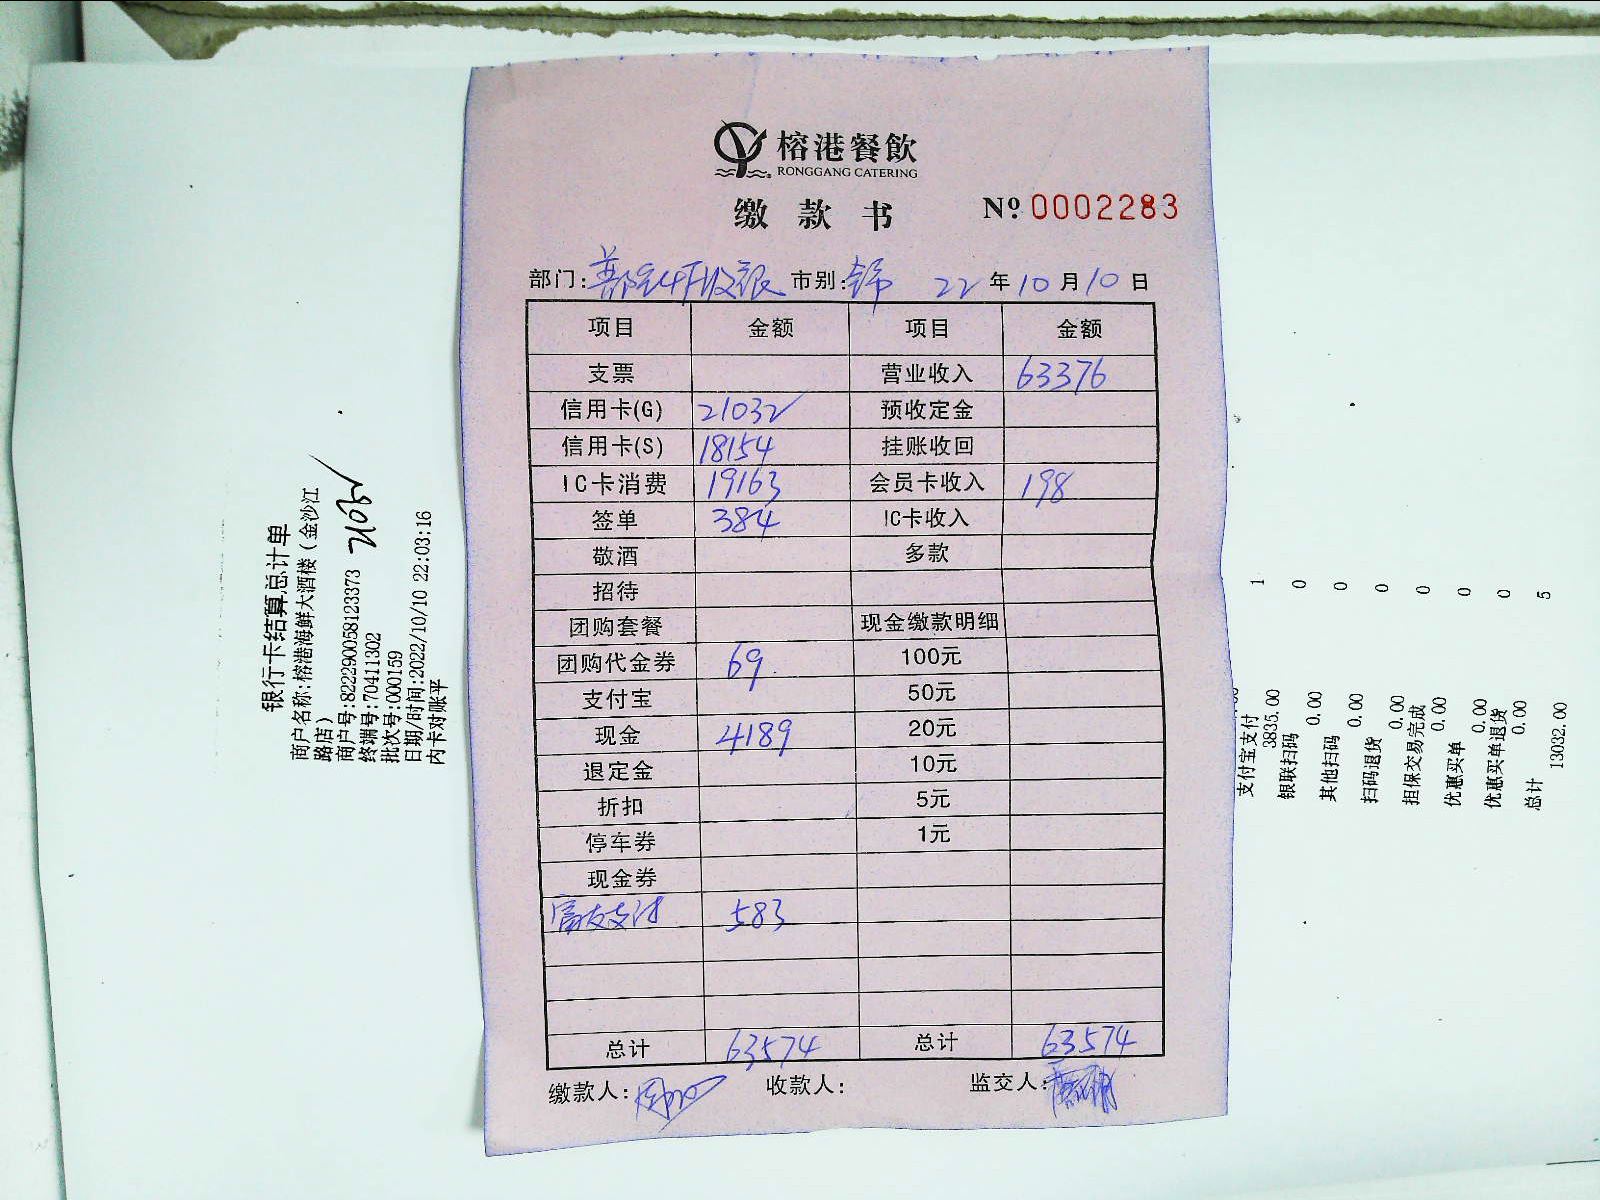 榕港餐飲
RONGGANG CATERING
缴款书 № 0002283
部门: 收银 市别: 22年10月10日
项目 金额 项目 金额
支票 营业收入 63376
信用卡(G) 21032 预收定金
信用卡(S) 18154 挂账收回
IC卡消费 19163 会员卡收入 198
签单 384 IC卡收入
敬酒 多款
招待
团购套餐 现金缴款明细
团购代金券 69. 100元
支付宝 50元
现金 4189 20元
退定金 10元
折扣 5元
停车券 1元
现金券
富友支付 583
总计 63574 总计 63574
缴款人: 收款人: 监交人:
银行卡结算总计单
商户名称:榕港海鲜大酒楼(金沙江
路店)
商户号:822290058123373
终端号:70411302
批次号:000159
日期/时间:2022/10/10 22:03:16
内卡对账平
支付宝支付 1
3835.00
银联扫码 0
0.00
其他扫码 0
0.00
扫码退货 0
0.00
担保交易完成 0
0.00
优惠买单 0
0.00
优惠买单退货 0
0.00
总计 5
13032.00